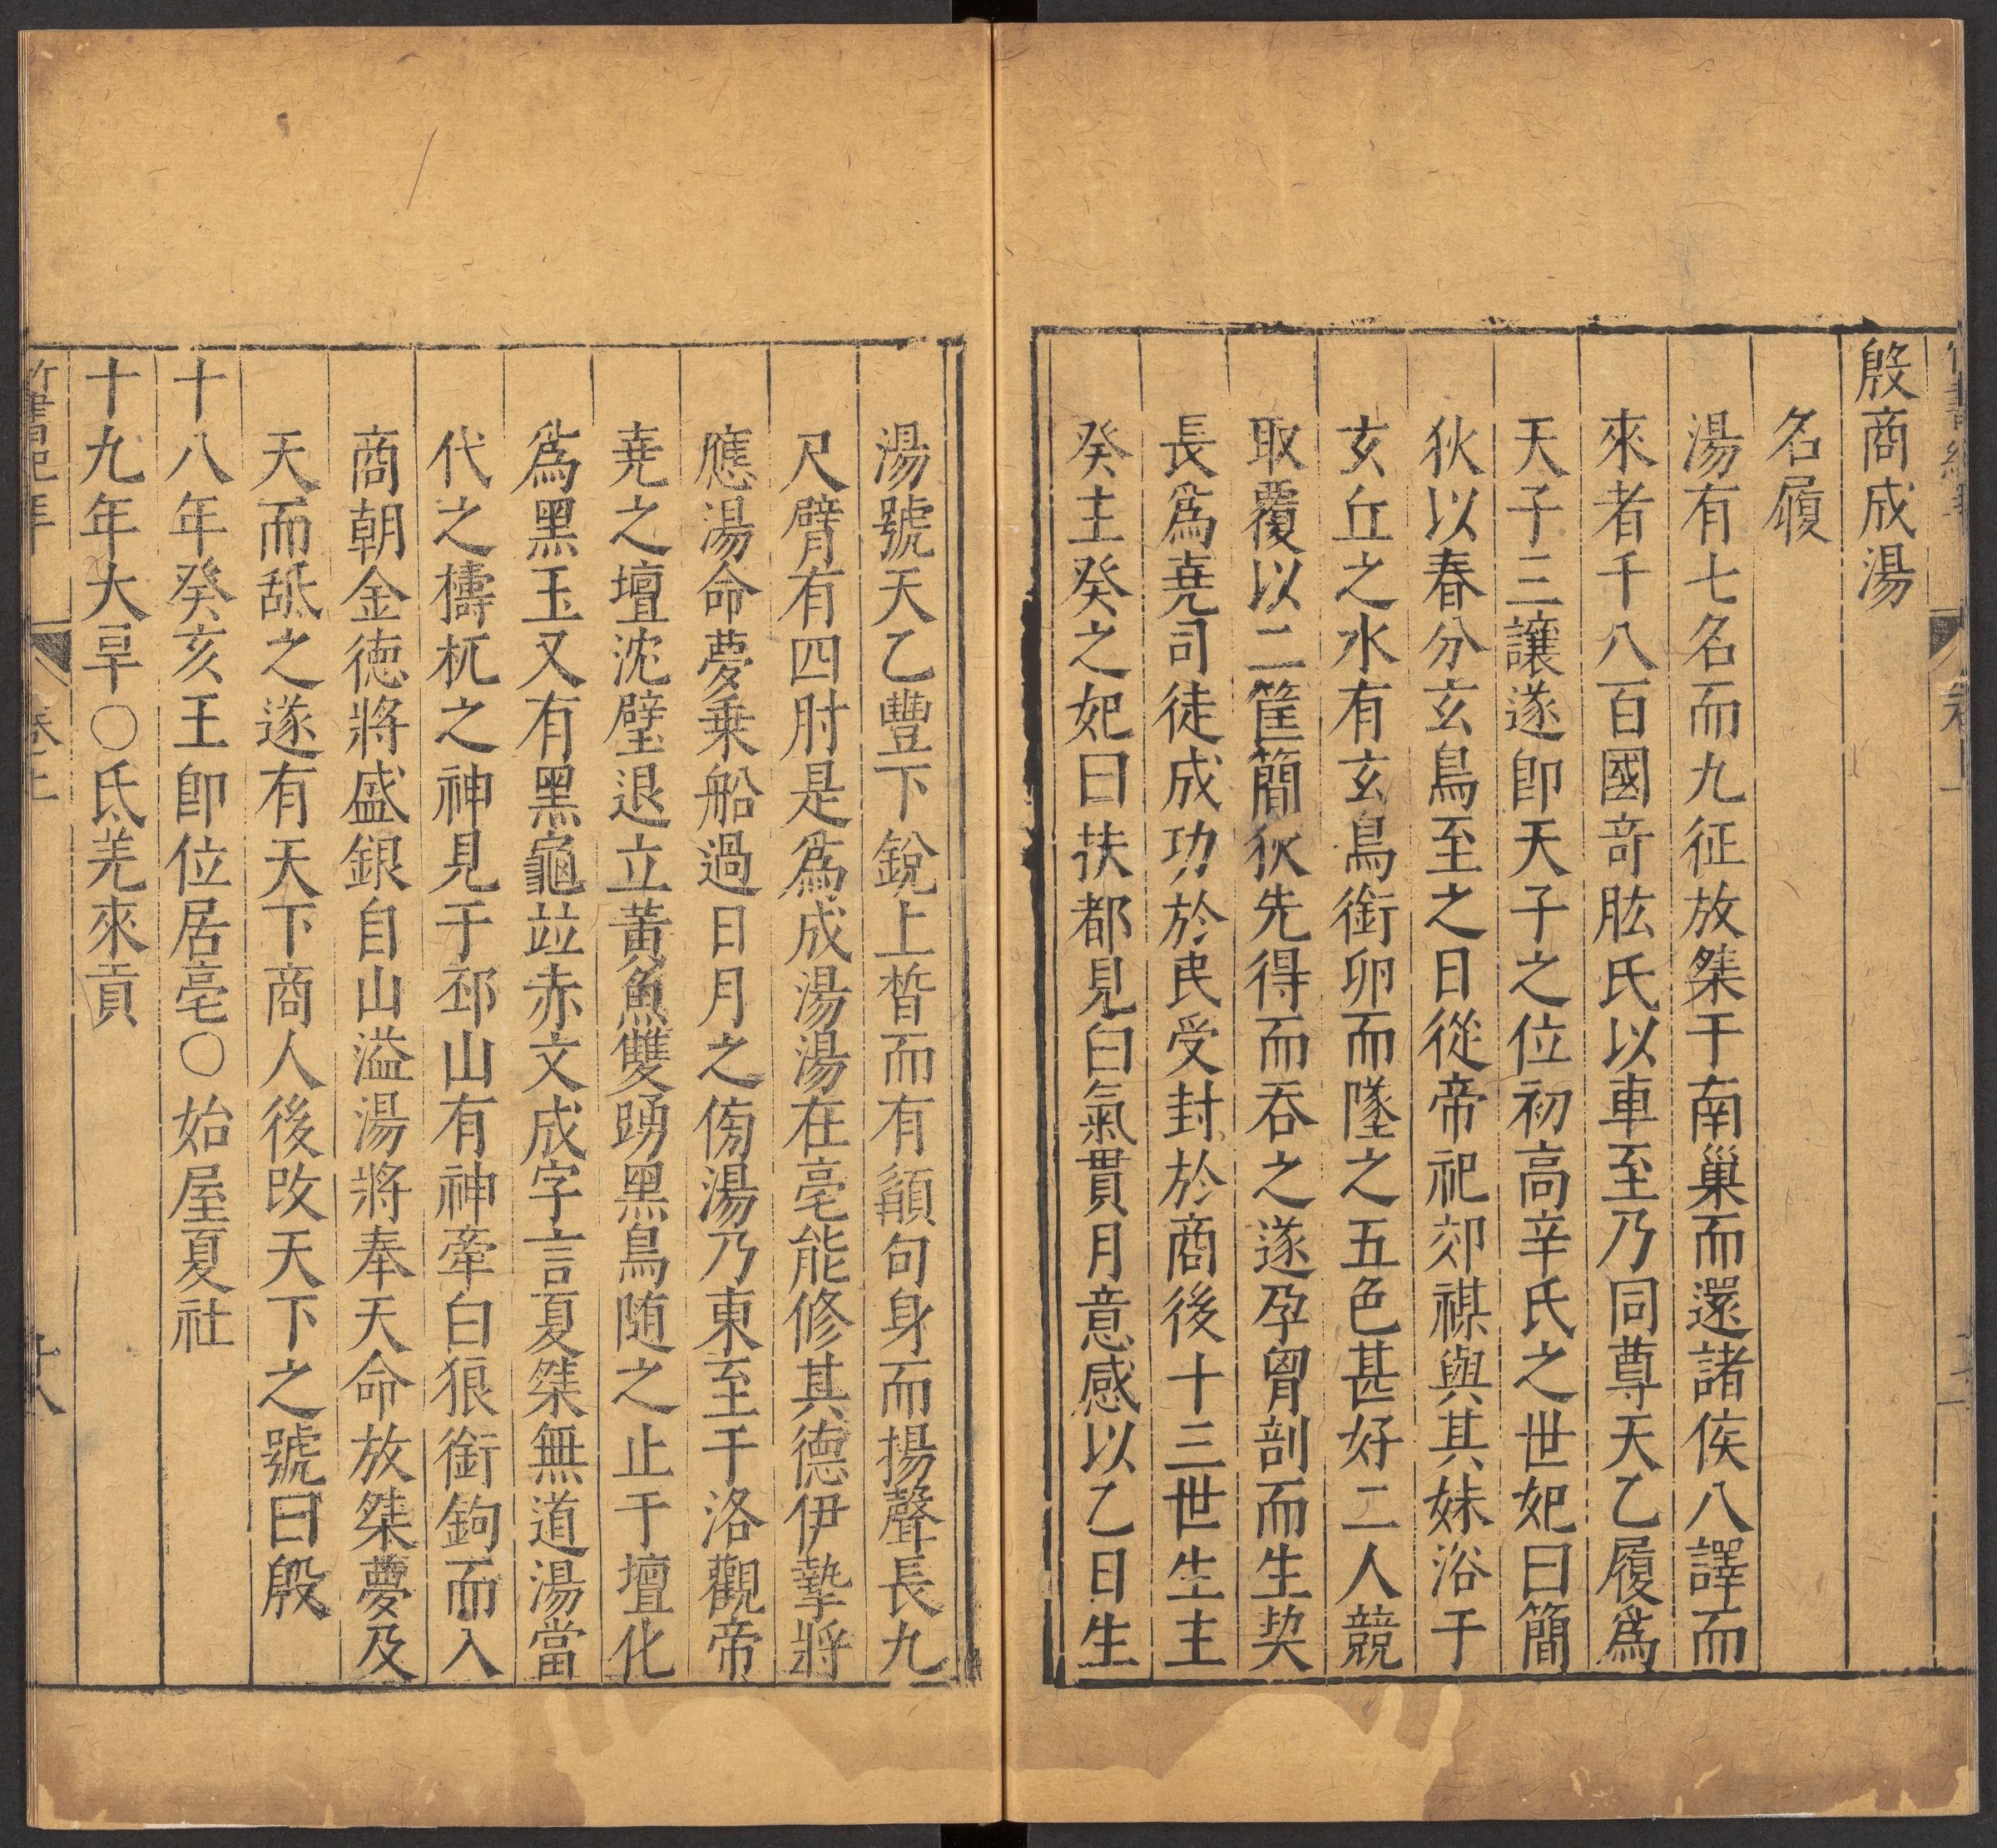 殷商成湯
名履
湯有七名而九征放桀于南巢而還諸侯八譯而
來者千八百國竒肱氏以車至乃同尊天乙履爲
天子三讓遂卽天子之位初高辛氏之世妃曰簡
狄以春分玄鳥至之日從帝祀郊禖與其妹浴于
玄丘之水有玄鳥銜卵而墜之五色甚好二人競
取覆以二筐簡狄先得而吞之遂孕胷剖而生契
長爲堯司徒成功於民受封於商後十三世生主
癸主癸之妃曰扶都見白氣貫月意感以乙日生
湯號天乙豐下銳上皙而有䫇句身而揚聲長九
尺臂有四肘是爲成湯湯在亳能修其德伊摯將
應湯命夢乗船過日月之傍湯乃東至于洛觀帝
堯之壇沈璧退立黃魚雙踴黑鳥随之止于壇化
爲黑玉又有黑龜竝赤文成字言夏桀無道湯當
代之檮杌之神見于邳山有神牽白狼銜鉤而入
商朝金德將盛銀自山溢湯將奉天命放桀夢及
天而舐之遂有天下商人後改天下之號曰殷
十八年癸亥王卽位居亳○始屋夏社
十九年大旱○氐羌來貢
竹書紀年 卷上 十八